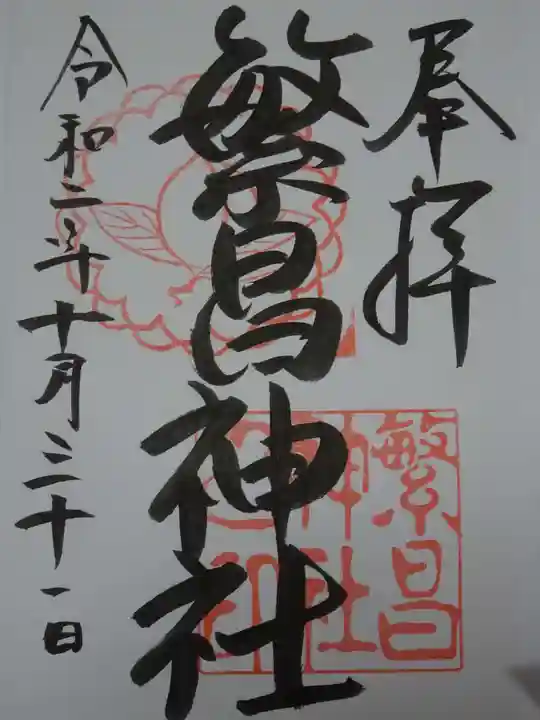 奉拝
繁昌神社
令和二年十月三十一日
繁昌
神社
之印